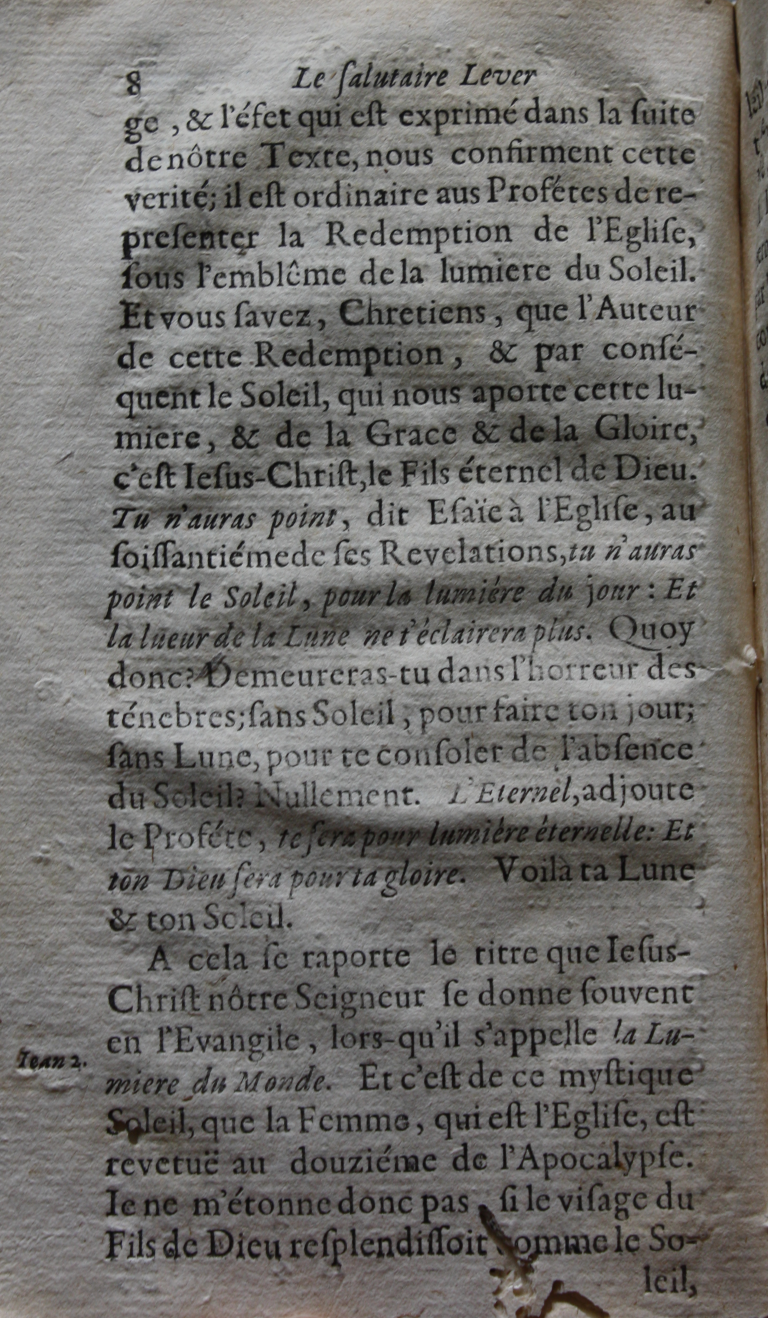 8 Le ſalutaire Lever
ge, & l'éfet qui eſt exprimé dans la ſuite
de nôtre Texte, nous confirment cette
verité; il eſt ordinaire aus Profétes de re-
preſenter la Redemption de l'Egliſe,
ſous l'emblême de la lumiere du Soleil.
Et vous ſavez, Chretiens, que l'Auteur
de cette Redemption, & par conſé-
quent le Soleil, qui nous aporte cette lu-
miere, & de la Grace & de la Gloire,
c'eſt Ieſus-Chriſt, le Fils éternel de Dieu.
Tu n'auras point, dit Eſaïe à l'Egliſe, au
ſoiſſantiéme de ſes Revelations, tu n'auras
point le Soleil, pour la lumiére du jour : Et
la lueur de la Lune ne t'éclairera plus. Quoy
donc? Demeureras-tu dans l'horreur des
ténebres; ſans Soleil, pour faire ton jour;
ſans Lune, pour te conſoler de l'abſence
du Soleil? Nullement. L'Eternel, adjoute
le Proféte, te ſera pour lumiére éternelle: Et
ton Dieu ſera pour ta gloire. Voilà ta Lune
& ton Soleil.
A cela ſe raporte le titre que Ieſus-
Chriſt nôtre Seigneur ſe donne ſouvent
en l'Evangile, lors-qu'il s'appelle la Lu-
Iean 2.
miere du Monde. Et c'eſt de ce myſtique
Soleil, que la Femme, qui eſt l'Egliſe, eſt
revetuë au douziéme de l'Apocalypſe.
Ie ne m'étonne donc pas, ſi le viſage du
Fils de Dieu reſplendiſſoit comme le So-
leil,